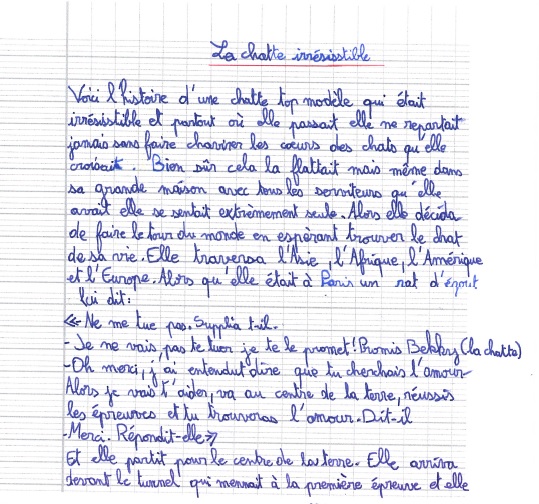 La chatte irrésisstible
Voici l'histoire d'une chatte top modèle qui était
irrésistible et partout où elle passait elle ne repartait
jamais sans faire chavirer les cœurs des chats qu'elle
croisait. Bien sûr cela la flattait mais même dans
sa grande maison avec tous les serviteurs qu'elle
avait elle se sentait extrèmement seule. Alors elle décida
de faire le tour du monde en espèrant trouver le chat
de sa vie. Elle traversa l'Asie, l'Afrique, l'Amérique
et l'Europe. Alors qu'elle était à Paris un rat d'égout
lui dit:
«- Ne me tue pas. Supplia t-il.
- Je ne vais pas te tuer je te le promet! Promis Bekky (la chatte)
- Oh merci, j'ai entendut dire que tu cherchais l'amour
Alors je vais t'aider, va au centre de la terre, réussis
les épreuves et tu trouveras l'amour. Dit-il
- Merci. Répondit-elle»
Et elle partit pour le centre de la terre. Elle arriva
devant le tunnel qui mennait à la première épreuve et elle